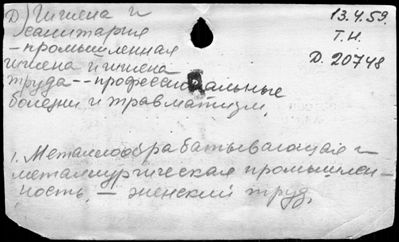 Д) Гигиена и
санитария
13.4.59.
Т.Н.
Д. 20748
- промышленная
гигиена и гигиена
труда -- профессиональные
болезни и травматизм.
1. Металлообрабатывающая и
металлургическая промышлен-
ность, - женский труд.